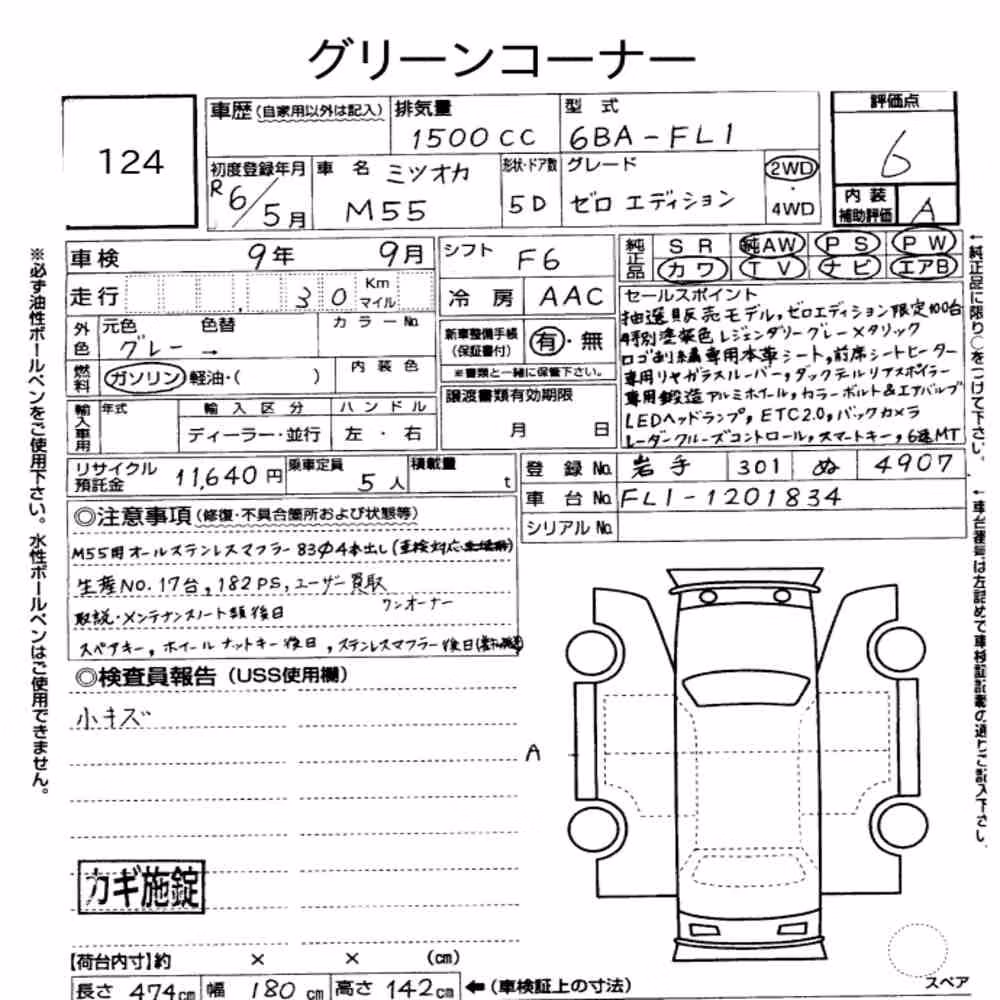 グリーンコーナー
124
車歴 (自家用以外は記入)
排気量
1500CC
型式
6BA-FL1
評価点
6
初度登録年月
R6/5月
車名 ミツオカ
M55
形状・ドア数
5D
グレード
ゼロ エディション
2WD
・
4WD
内装
補助評価
A
車検 9年 9月
シフト F6
純正品 SR 純AW PS PW
カワ TV ナビ エアB
走行 30 Km マイル
冷房 AAC
外色 元色 色替 カラーNo.
グレー →
新車整備手帳
(保証書付)
有・無
※書類と一緒に保管下さい。
燃料 ガソリン 軽油・( )
内装色
譲渡書類有効期限
月 日
輸入車用 年式 輸入区分 ハンドル
ディーラー・並行 左・右
セールスポイント
抽選販売モデル,ゼロエディション限定100台
特別塗装色レジェンダリーグレーメタリック
ロゴ刺繍専用本革シート,前席シートヒーター
専用リヤガラスルーバー,ダックテルリアスポイラー
専用鍛造アルミホイール,カラーボルト&エアバルブ
LEDヘッドランプ,ETC2.0,バックカメラ
レーダークルーズコントロール,スマートキー,6速MT
リサイクル
預託金
11,640円
乗車定員
5人
積載量
t
登録No. 岩手 301 ぬ 4907
車台No. FL1-1201834
シリアルNo.
◎注意事項 (修復・不具合箇所および状態等)
M55用オールステンレスマフラー83φ4本出し(車検対応
生産NO.17台,182PS,ユーザー買取
ワンオーナー
取説・メンテナンスノート類後日
スペアキー,ホイールナットキー後日,ステンレスマフラー後日
◎検査員報告 (USS使用欄)
小キズ
A
カギ施錠
【荷台内寸】約 × × (cm)
長さ 474cm 幅 180cm 高さ 142cm ←(車検証上の寸法)
スペア
※必ず油性ボールペンをご使用下さい。水性ボールペンはご使用できません。
←純正品に限り○をつけて下さい。
←車台番号は左詰めで車検証記載の通りご記入下さい。